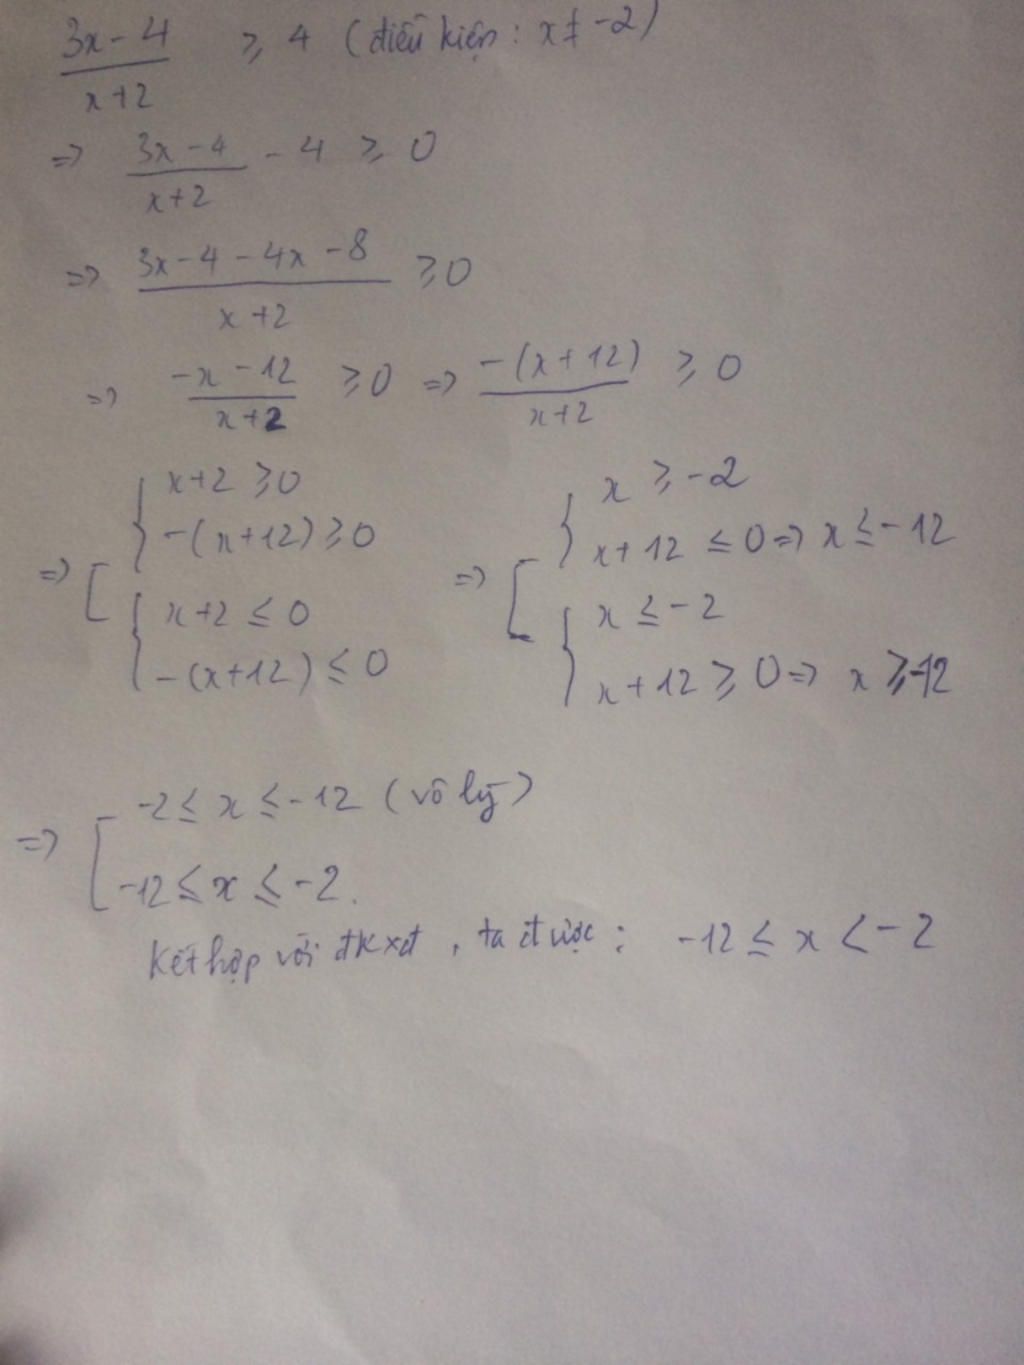 (3x - 4)/(x+2) ≥ 4 (điều kiện : x ≠ -2)
=> (3x - 4)/(x+2) - 4 ≥ 0
=> (3x - 4 - 4x - 8)/(x+2) ≥ 0
=> (-x - 12)/(x+2) ≥ 0 => (-(x + 12))/(x+2) ≥ 0
=> [ { x+2 ≥ 0
-(x+12) ≥ 0
{ x+2 ≤ 0
-(x+12) ≤ 0
=> [ { x ≥ -2
x + 12 ≤ 0 => x ≤ -12
{ x ≤ -2
x + 12 ≥ 0 => x ≥ -12
=> [ -2 ≤ x ≤ -12 (vô lý)
-12 ≤ x ≤ -2.
Kết hợp với đkxđ, ta được : -12 ≤ x < -2